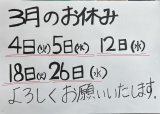 3月のお休み
4日(火)5日(水) 12日(水)
18日(火)26日(水)
よろしくお願いいたします。